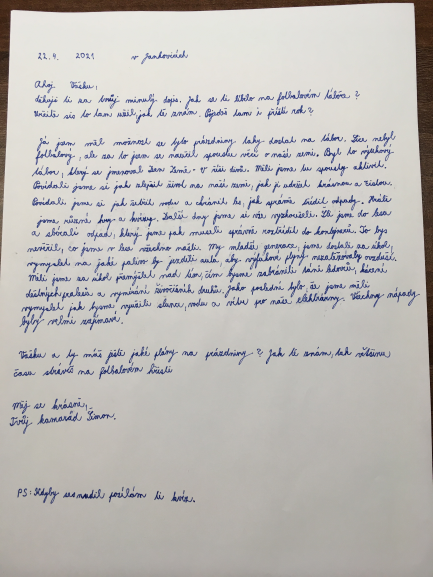 22.4. 2021 v Jankovicích
Ahoj Vašku,
děkuji ti za tvůj minulý dopis. Jak se ti líbilo na fotbalovém táboře?
Určitě sis to tam užil, jak tě znám. Pojedeš tam i příští rok?
Já jsem měl možnost se tyto prázdniny taky dostat na tábor. Sice nebyl
fotbalový, ale za to jsem se naučil spoustu věcí o naší zemi. Byl to výukový
tábor, který se jmenoval Den Země - v říši divů. Měli jsme tu spousty aktivit.
Povídali jsme si jak zlepšit život na naší zemi, jak ji udržet krásnou a čistou.
Povídali jsme si jak šetřit vodu a chránit les, jak správně třídit odpady. Hráli
jsme různé hry a kvízy. Další dny jsme si vše vyzkoušeli. Šli jsme do lesa
a sbírali odpad, který jsme pak museli správně roztřídit do kontejnerů. To bys
nevěřil, co jsme v lese všechno našli. My mladší generace, jsme dostali za úkol
vymyslet na jaké palivo by jezdili auta, aby výfukové plyny nezatěžovaly ovzduší.
Měli jsme za úkol přemýšlet nad tím, čím bysme zabránili tání ledovců, kácení
deštných pralesů a vymírání živočišných druhů. Jako poslední bylo, že jsme měli
vymyslet jak bysme využili slunce, vodu a vítr pro naše elektrárny. Všechny nápady
byly velmi zajímavé.
Vašku a ty máš ještě jaké plány na prázdniny? Jak tě znám, tak většinu
času strávíš na fotbalovém hřišti
Měj se krásně,
Tvůj kamarád Šimon.
PS: Kdyby ses nudil posílám ti kvíz.